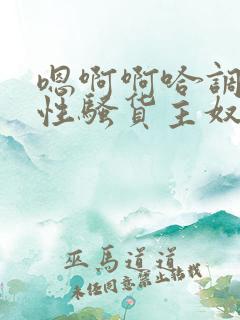 嗯啊啊哈調
性騷貨主奴
巫馬道道
未經同意禁止轉載